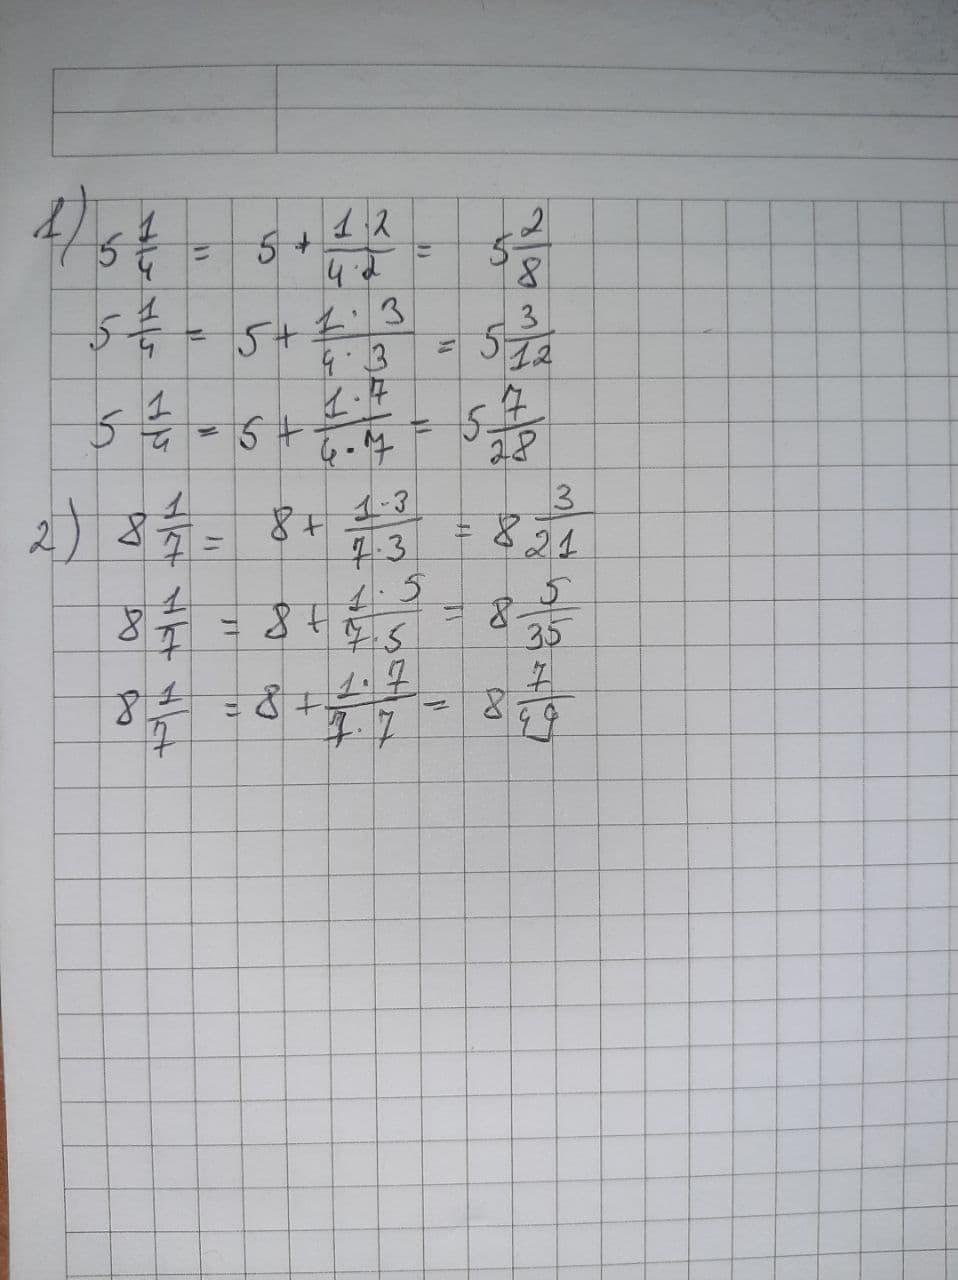 1) 5 1/4 = 5 + 1·2/4·2 = 5 2/8
5 1/4 = 5 + 1·3/4·3 = 5 3/12
5 1/4 = 5 + 1·7/4·7 = 5 7/28
2) 8 1/7 = 8 + 1·3/7·3 = 8 3/21
8 1/7 = 8 + 1·5/7·5 = 8 5/35
8 1/7 = 8 + 1·7/7·7 = 8 7/49